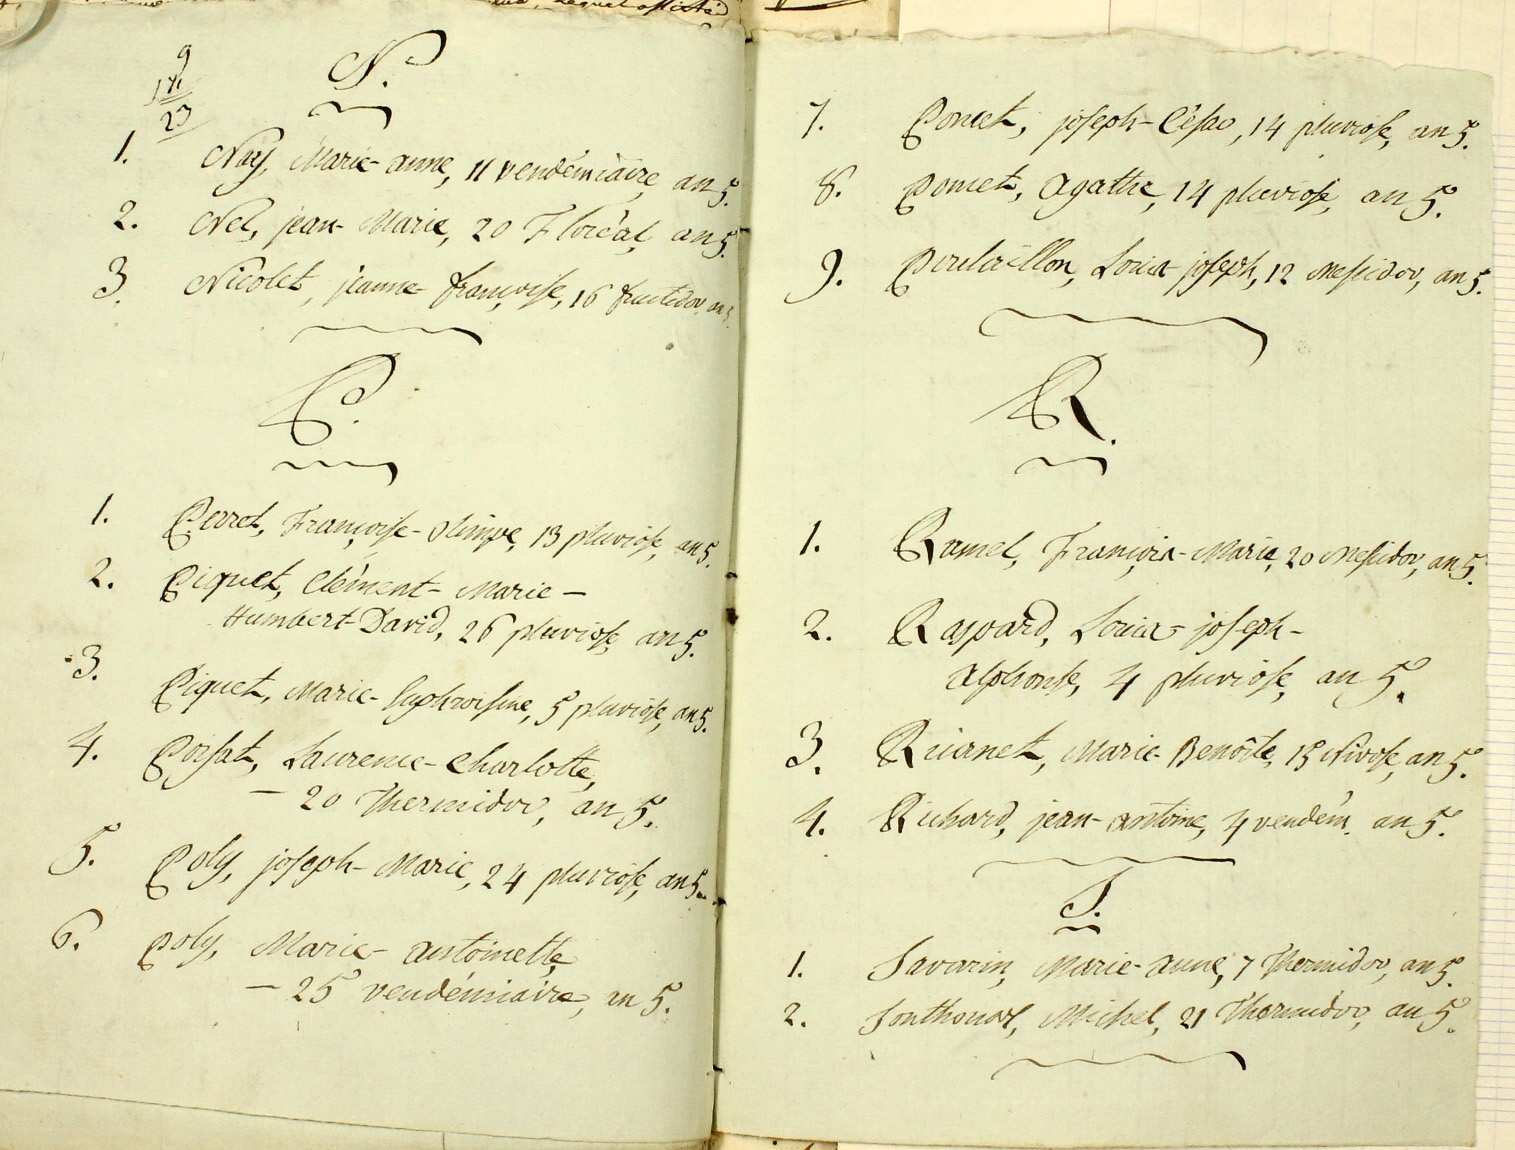 9
14
23
N.
1. Naÿ, Marie-anne, 11 vendémiaire, an 5.
2. Nel, jean-Marie, 20 Floréal, an 5.
3. Nicolet, jeanne-françoise, 16 fructidor, an 5.
P.
1. Perret, Françoise-Olimpe, 13 pluviôse, an 5.
2. Piquet, Clément-Marie-
Humbert-David, 26 pluviose, an 5.
3. Piquet, Marie-Euphrosine, 5 pluviôse, an 5.
4. Poisat, Laurence-Charlotte,
- 20 Thermidor, an 5.
5. Poly, joseph-Marie, 24 pluviôse, an 5.
6. Poly, Marie-antoinette,
- 25 vendémiaire, an 5.
7. Poncet, joseph-César, 14 pluviose, an 5.
8. Poncet, agathe, 14 pluviose, an 5.
9. Louis-joseph, 12 Messidor, an 5.
R.
1. Ramel, François-Marie, 20 Messidor, an 5.
2. Raspard, Louis-joseph-
alphonse, 4 pluviôse, an 5.
3. Marie-Benoîte, 15 Nivose, an 5.
4. Richard, jean-antoine, 4 vendém. an 5.
S.
1. Savarin, Marie-anne, 7 Thermidor, an 5.
2. Sonthonax, Michel, 21 Thermidor, an 5.